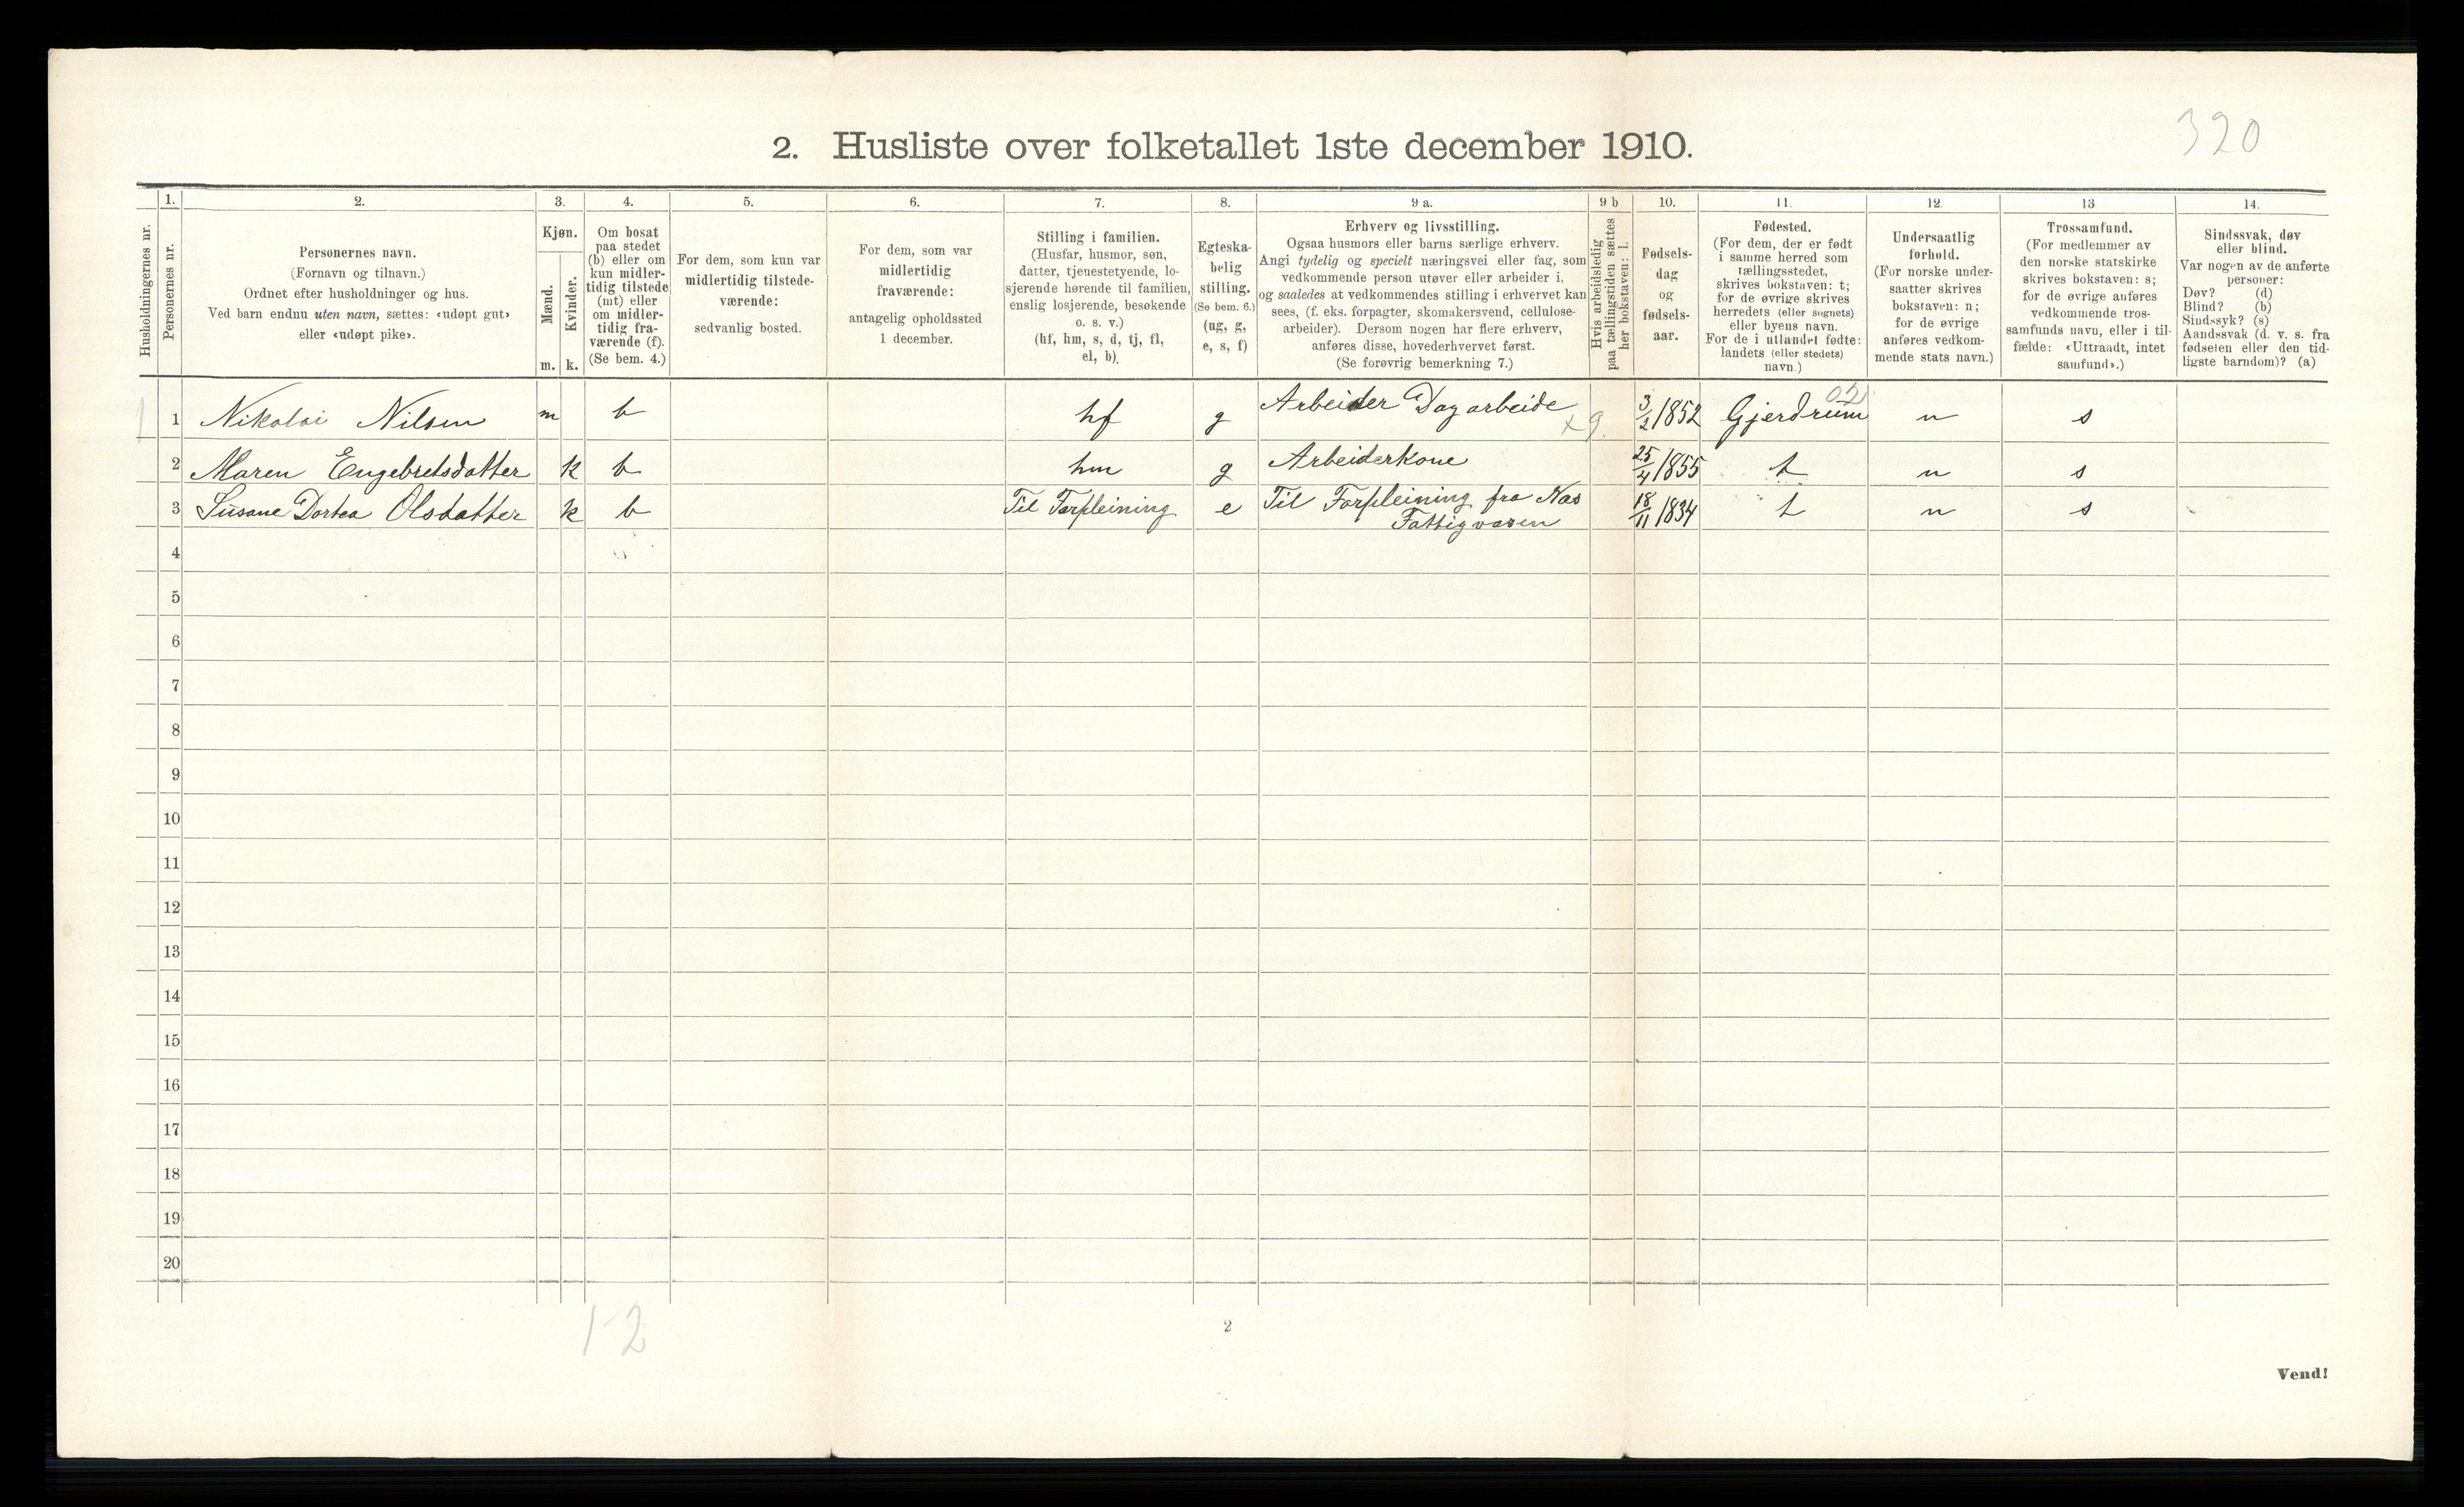 320
2. Husliste over folketallet 1ste december 1910.
Husholdningernes nr.
1.
Personernes nr.
2.
Personernes navn.
(Fornavn og tilnavn.)
Ordnet efter husholdninger og hus.
Ved barn endnu uten navn, sættes: «udøpt gut»
eller «udøpt pike».
3.
Kjøn.
Mænd.
Kvinder.
m. k.
4.
Om bosat
paa stedet
(b) eller om
kun midler-
tidig tilstede
(mt) eller
om midler-
tidig fra-
værende (f).
(Se bem. 4.)
5.
For dem, som kun var
midlertidig tilstede-
værende:
sedvanlig bosted.
6.
For dem, som var
midlertidig
fraværende:
antagelig opholdssted
1 december.
7.
Stilling i familien.
(Husfar, husmor, søn,
datter, tjenestetyende, lo-
sjerende hørende til familien,
enslig losjerende, besøkende
o. s. v.)
(hf, hm, s, d, tj, fl,
el, b).
8.
Egteska-
belig
stilling.
(Se bem. 6.)
(ug, g,
e, s, f)
9 a.
Erhverv og livsstilling.
Ogsaa husmors eller barns særlige erhverv.
Angi tydelig og specielt næringsvei eller fag, som
vedkommende person utøver eller arbeider i,
og saaledes at vedkommendes stilling i erhvervet kan
sees, (f. eks. forpagter, skomakersvend, cellulose-
arbeider). Dersom nogen har flere erhverv,
anføres disse, hovederhvervet først.
(Se forøvrig bemerkning 7.)
9 b
Hvis arbeidsledig
paa tællingstiden sættes
her bokstaven: l.
10.
Fødsels-
dag
og
fødsels-
aar.
11.
Fødested.
(For dem, der er født
i samme herred som
tællingsstedet,
skrives bokstaven: t;
for de øvrige skrives
herredets (eller sognets)
eller byens navn.
For de i utlandet fødte:
landets (eller stedets)
navn.)
12.
Undersaatlig
forhold.
(For norske under-
saatter skrives
bokstaven: n;
for de øvrige
anføres vedkom-
mende stats navn.)
13
Trossamfund.
(For medlemmer av
den norske statskirke
skrives bokstaven: s;
for de øvrige anføres
vedkommende tros-
samfunds navn, eller i til-
fælde: «Uttraadt, intet
samfund».)
14.
Sindssvak, døv
eller blind.
Var nogen av de anførte
personer:
Døv? (d)
Blind? (b)
Sindssyk? (s)
Aandssvak (d. v. s. fra
fødselen eller den tid-
ligste barndom)? (a)
02
1 1 Nikolai Nilsen m b hf g Arbeider Dagarbeide xg. 3/2 1852 Gjerdrum n s
2 Maren Engebretsdatter k b hm g Arbeiderkone 25/4 1855 t n s
3 Susane Dortea Olsdatter k b Til Forpleining e Til Forpleining fra Nas 18/11 1834 t n s
Fattigvæsen
4
5
6
7
8
9
10
11
12
13
14
15
16
17
18
19
20
1 2
2
Vend!